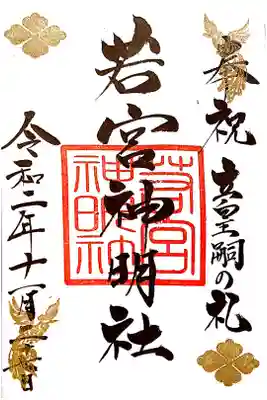 奉祝 立皇嗣の礼
若宮神明社
若宮
神明社
令和二年十一月